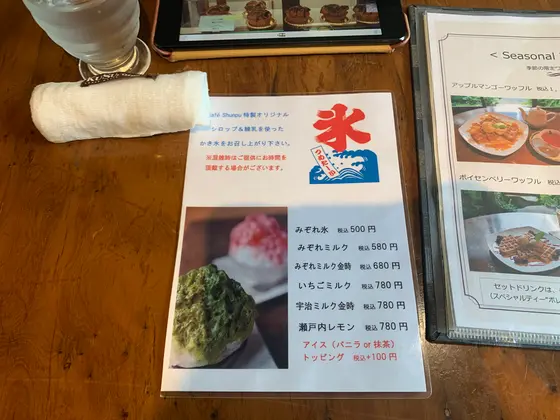 Café Shunpu 特製オリジナル
シロップ&練乳を使った
かき氷をお召し上がり下さい。
※混雑時はご提供にお時間を
頂戴する場合がございます。
氷
みぞれ氷 税込 500 円
みぞれミルク 税込 580 円
みぞれミルク金時 税込 680 円
いちごミルク 税込 780 円
宇治ミルク金時 税込 780 円
瀬戸内レモン 税込 780 円
アイス(バニラ or 抹茶)
トッピング 税込+100 円
< Seasonal
季節の限定ワ
アップルマンゴーワッフル 税込 1,
ボイセンベリーワッフル 税込
セットドリンクは、
(スペシャルティー"ポレ